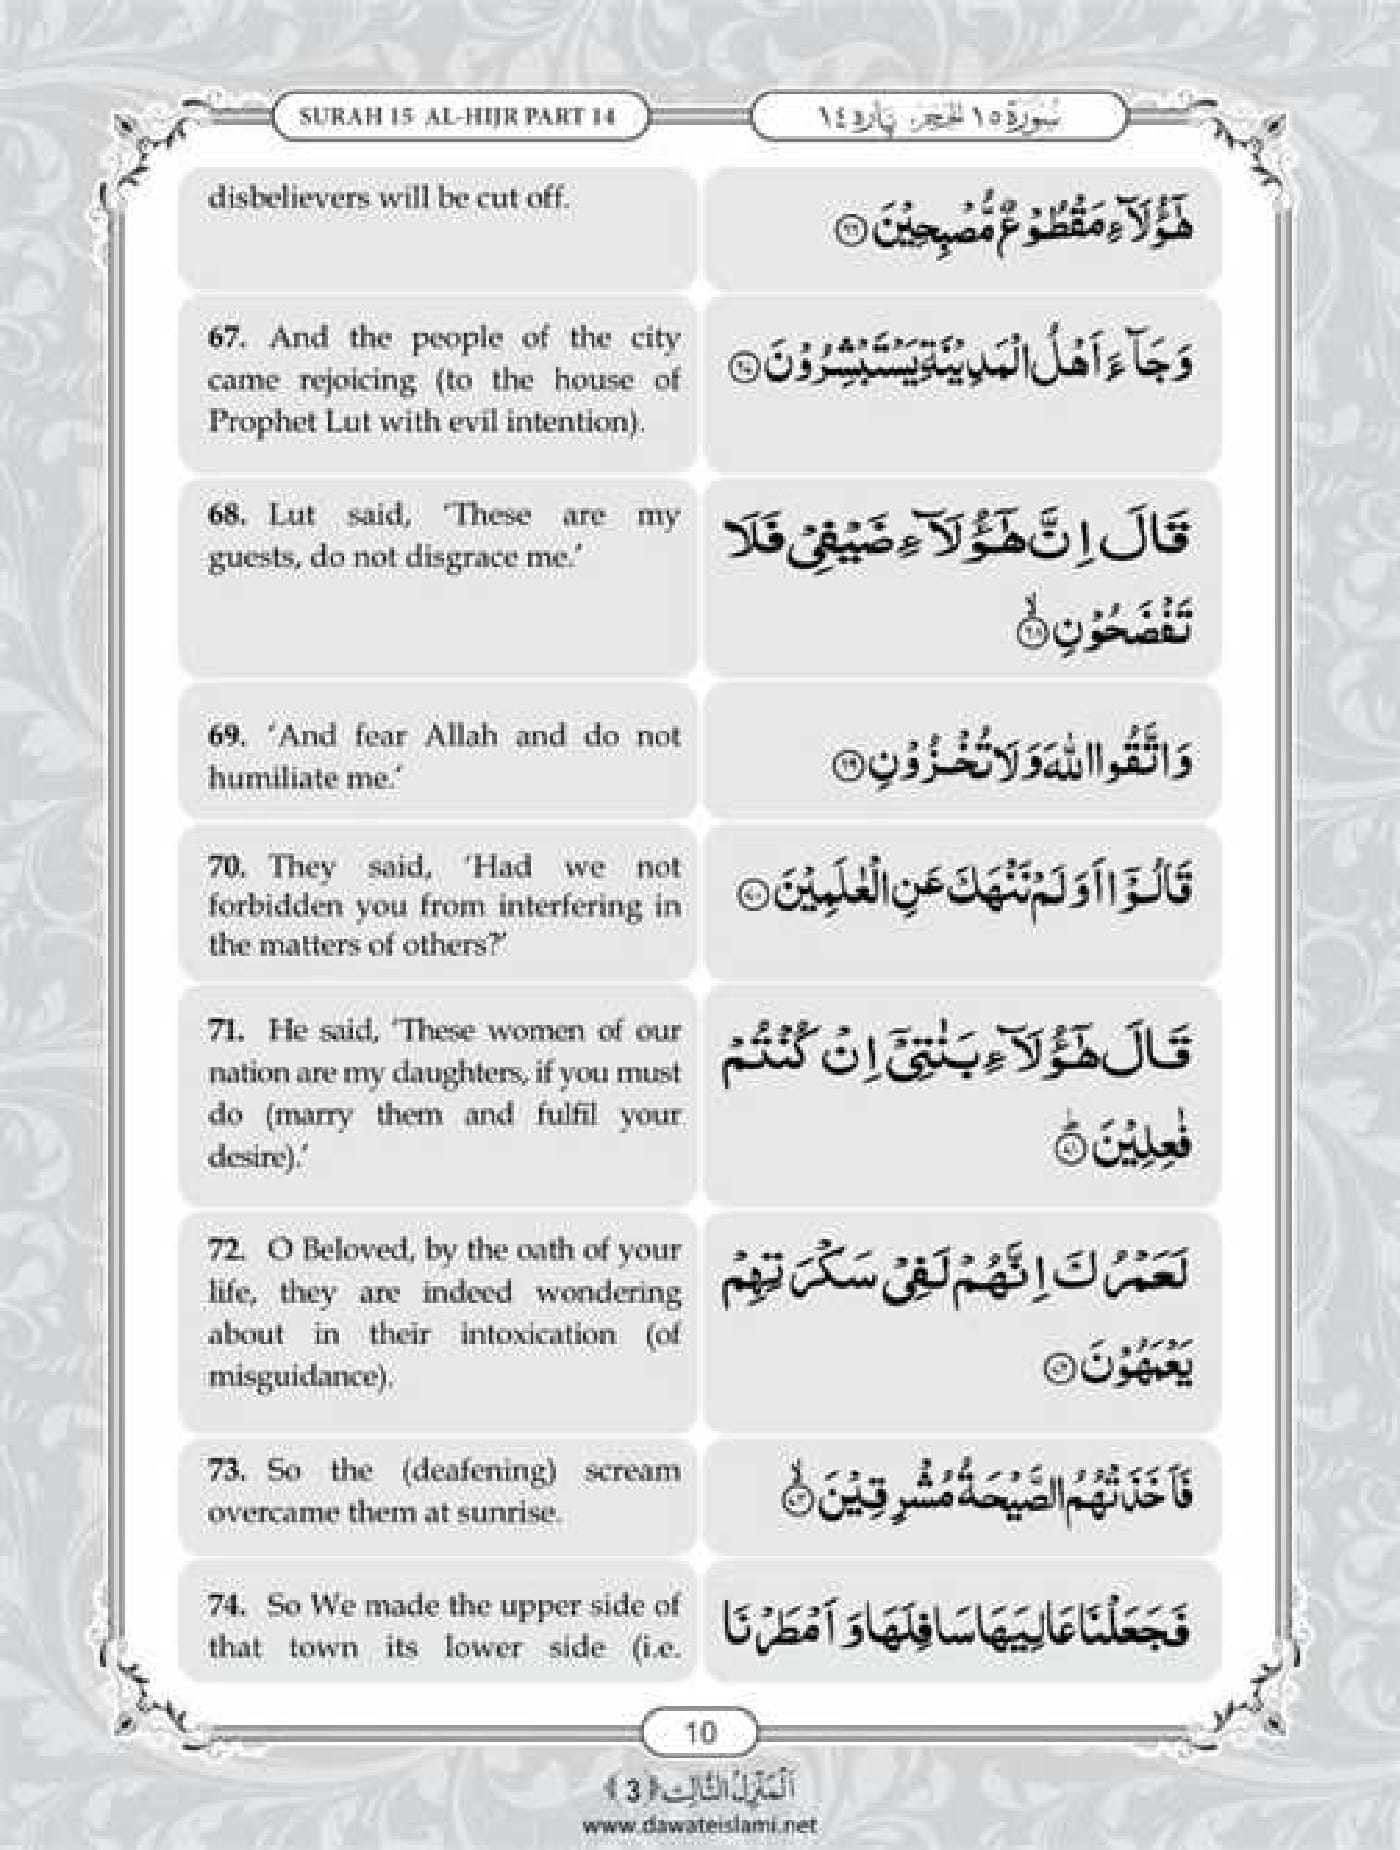 SURAH 15 AL-HIJR PART 14
سُوْرَةُ ١٥ الحِجر، پاره ١٤
disbelievers will be cut off.
هٰۤؤُلَآءِ مَقْطُوْعٌ مُّصْبِحِیْنَ ﴿۶۶﴾
67. And the people of the city
came rejoicing (to the house of
Prophet Lut with evil intention).
وَجَآءَ اَهْلُ الْمَدِیْنَةِ یَسْتَبْشِرُوْنَ ﴿۶۷﴾
68. Lut said, ‘These are my
guests, do not disgrace me.’
قَالَ اِنَّ هٰۤؤُلَآءِ ضَیْفِیْ فَلَا
تَفْضَحُوْنِ ﴿ۙ۶۸﴾
69. ‘And fear Allah and do not
humiliate me.’
وَاتَّقُوا اللّٰهَ وَلَا تُخْزُوْنِ ﴿۶۹﴾
70. They said, ‘Had we not
forbidden you from interfering in
the matters of others?’
قَالُوْۤا اَوَلَمْ نَنْهَكَ عَنِ الْعٰلَمِیْنَ ﴿۷۰﴾
71. He said, ‘These women of our
nation are my daughters, if you must
do (marry them and fulfil your
desire).’
قَالَ هٰۤؤُلَآءِ بَنٰتِیْۤ اِنْ كُنْتُمْ
فٰعِلِیْنَ ﴿ؕ۷۱﴾
72. O Beloved, by the oath of your
life, they are indeed wondering
about in their intoxication (of
misguidance).
لَعَمْرُكَ اِنَّهُمْ لَفِیْ سَكْرَتِهِمْ
یَعْمَهُوْنَ ﴿۷۲﴾
73. So the (deafening) scream
overcame them at sunrise.
فَاَخَذَتْهُمُ الصَّیْحَةُ مُشْرِقِیْنَ ﴿ۙ۷۳﴾
74. So We made the upper side of
that town its lower side (i.e.
فَجَعَلْنَا عَالِیَهَا سَافِلَهَا وَ اَمْطَرْنَا
10
اَلْمَنْزِلُ الثَّالِث ﴿3﴾
www.dawateislami.net